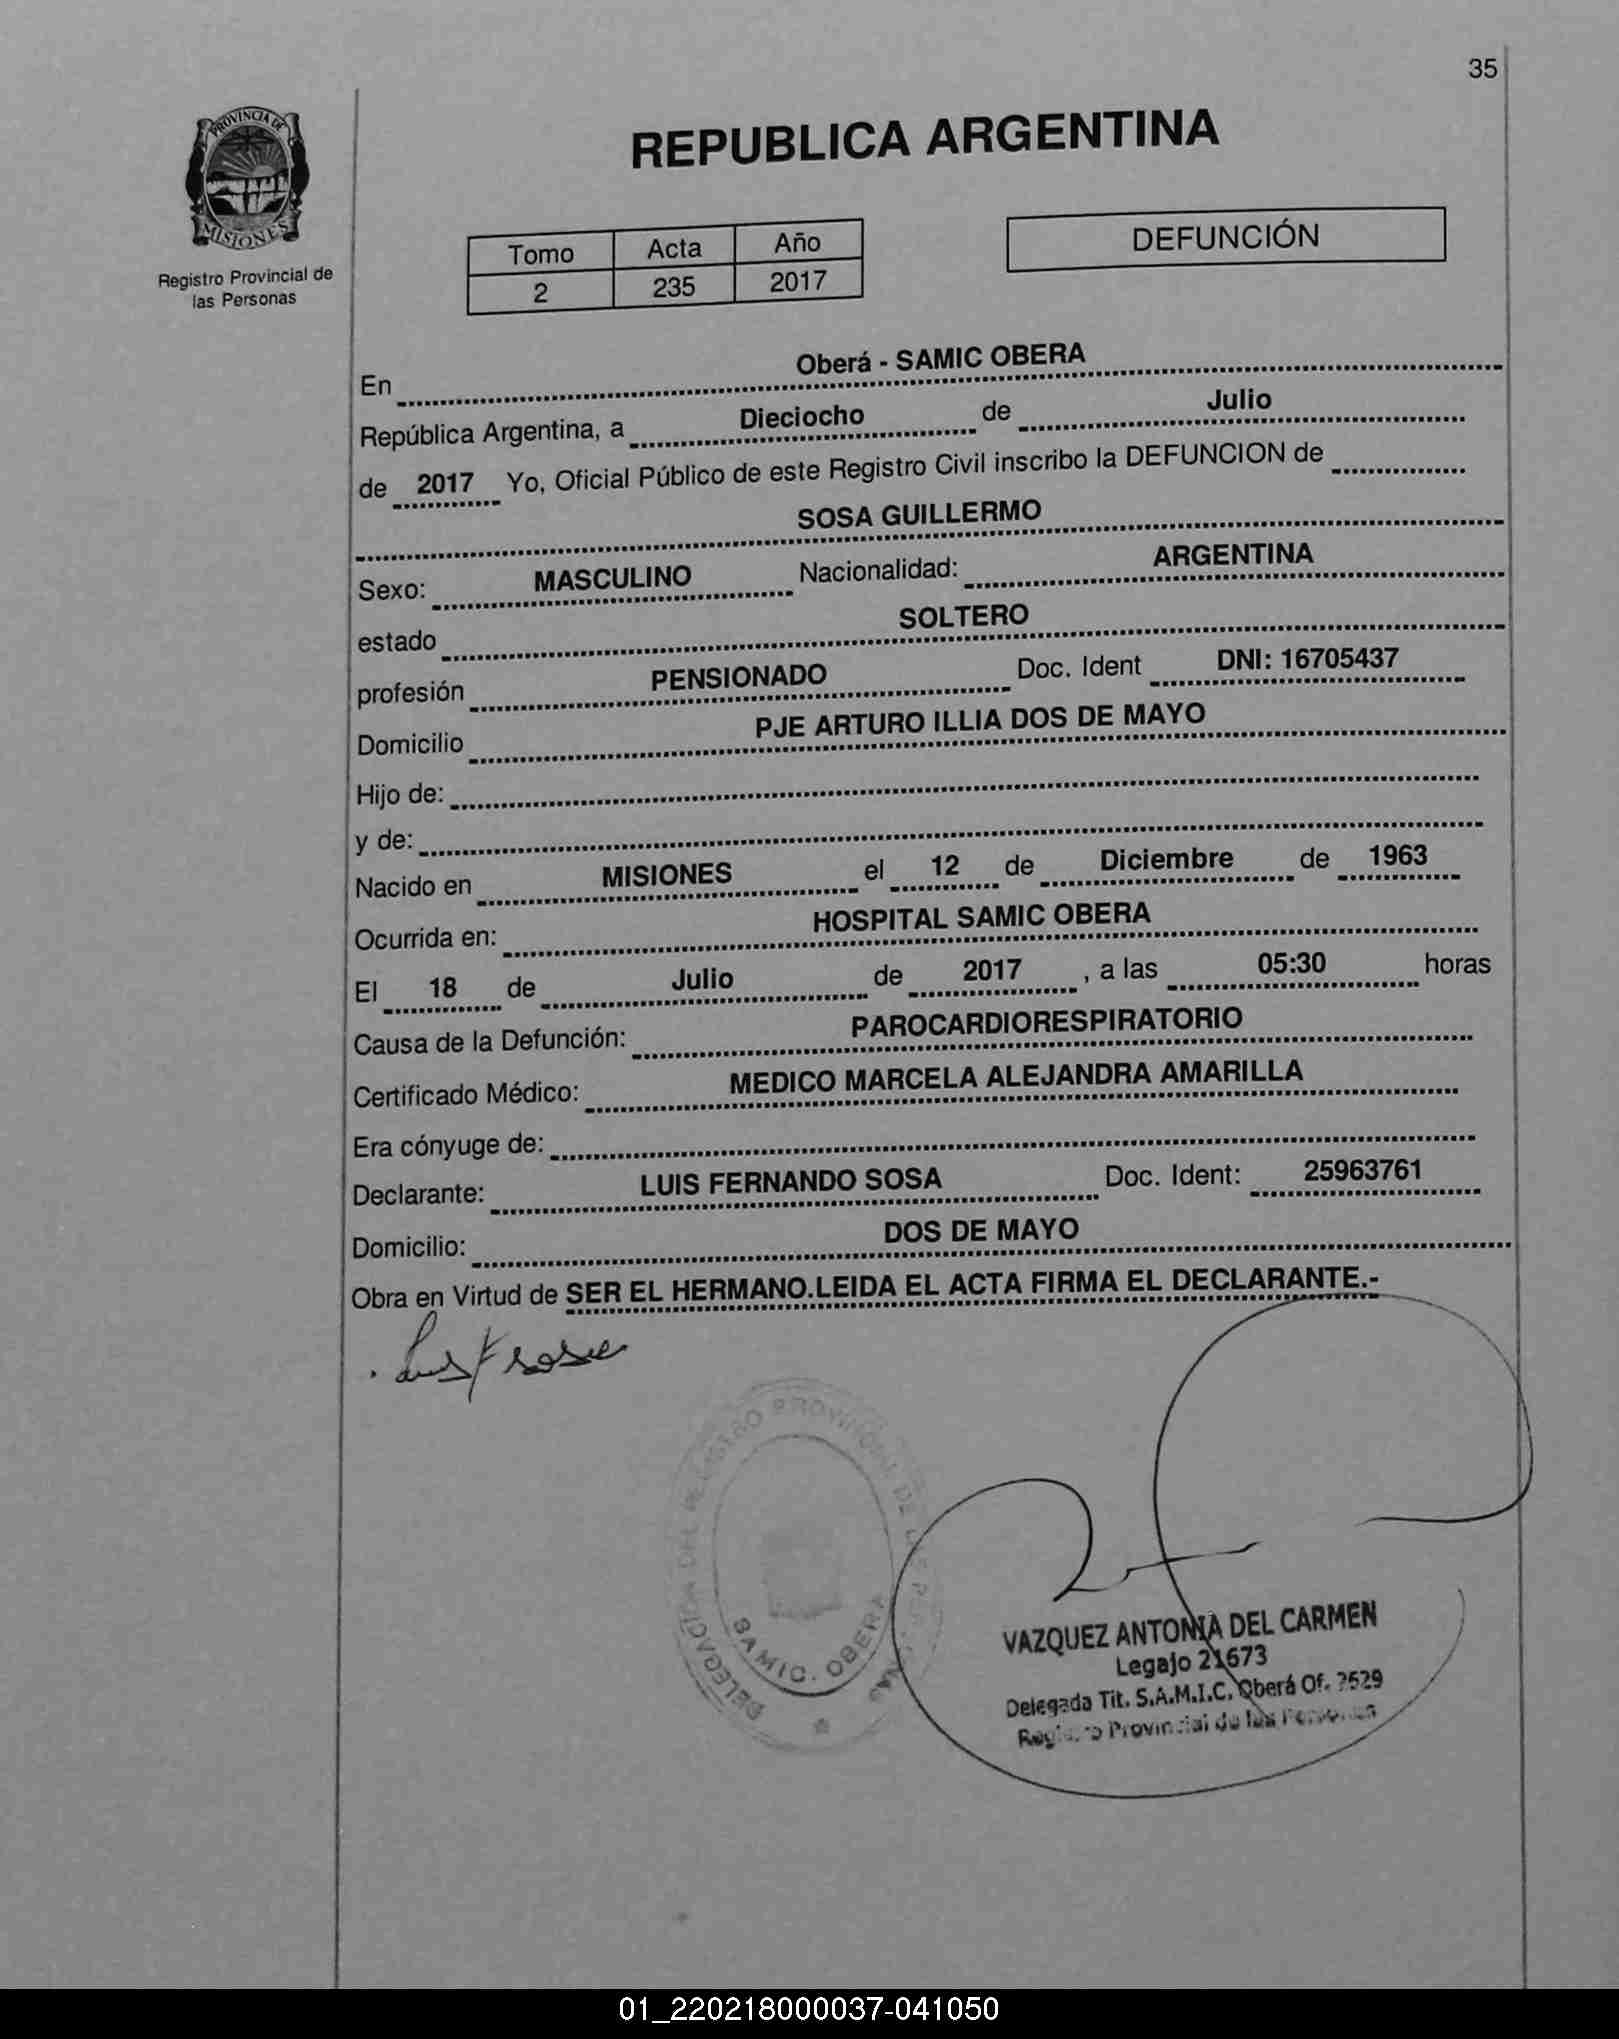 35
PROVINCIA DE
MISIONES
Registro Provincial de
las Personas
REPUBLICA ARGENTINA
Tomo Acta Año
2 235 2017
DEFUNCIÓN
En Oberá - SAMIC OBERA
República Argentina, a Dieciocho de Julio
de 2017 Yo, Oficial Público de este Registro Civil inscribo la DEFUNCION de
SOSA GUILLERMO
Sexo: MASCULINO Nacionalidad: ARGENTINA
estado SOLTERO
profesión PENSIONADO Doc. Ident DNI: 16705437
Domicilio PJE ARTURO ILLIA DOS DE MAYO
Hijo de:
y de:
Nacido en MISIONES el 12 de Diciembre de 1963
Ocurrida en: HOSPITAL SAMIC OBERA
El 18 de Julio de 2017 , a las 05:30 horas
Causa de la Defunción: PAROCARDIORESPIRATORIO
Certificado Médico: MEDICO MARCELA ALEJANDRA AMARILLA
Era cónyuge de:
Declarante: LUIS FERNANDO SOSA Doc. Ident: 25963761
Domicilio: DOS DE MAYO
Obra en Virtud de SER EL HERMANO.LEIDA EL ACTA FIRMA EL DECLARANTE.-
Luis F sosa
DELEGACION DEL REGISTRO PROVINCIAL DE LAS PERSONAS
SAMIC. OBERA
VAZQUEZ ANTONIA DEL CARMEN
Legajo 21673
Delegada Tit. S.A.M.I.C. Oberá Of. 2529
Registro Provincial de las Personas
01_220218000037-041050